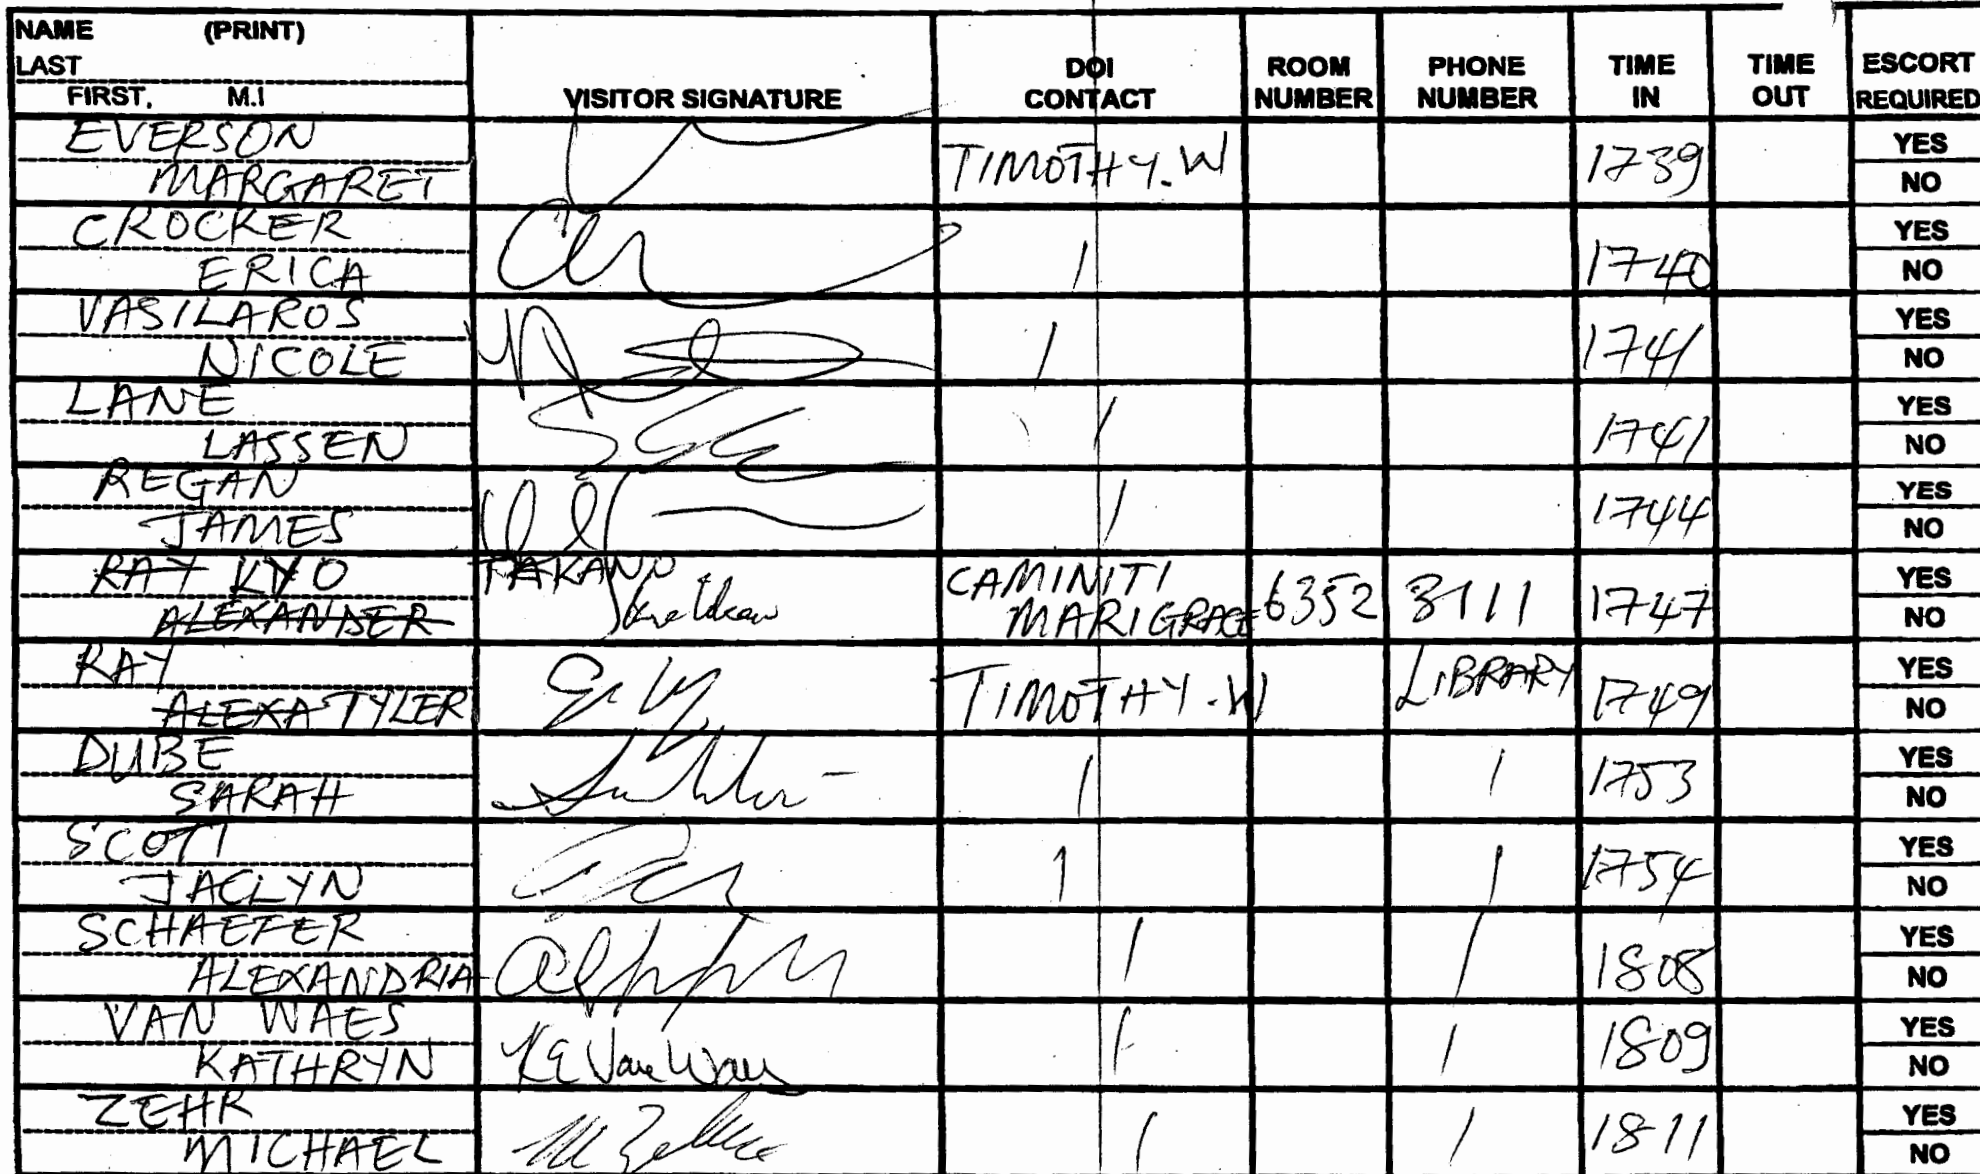 NAME (PRINT)
LAST
FIRST, M.I
VISITOR SIGNATURE
DOI CONTACT
ROOM NUMBER
PHONE NUMBER
TIME IN
TIME OUT
ESCORT REQUIRED
EVERSON
MARGARET
TIMOTHY.W
1739
YES
NO
CROCKER
ERICA
1740
YES
NO
VASILAROS
NICOLE
1741
YES
NO
LANE
LASSEN
1741
YES
NO
REGAN
JAMES
1744
YES
NO
RAY KYO TAKANO
ALEXANDER
CAMINITI
MARIGRACE
6352
3111
1747
YES
NO
RAY
ALEXA TYLER
TIMOTHY.W
LIBRARY
1749
YES
NO
DUBE
SARAH
1753
YES
NO
SCOTT
JACLYN
1754
YES
NO
SCHAEFER
ALEXANDRIA
1808
YES
NO
VAN WAES
KATHRYN
KE Van Waes
1809
YES
NO
ZEHR
MICHAEL
1811
YES
NO